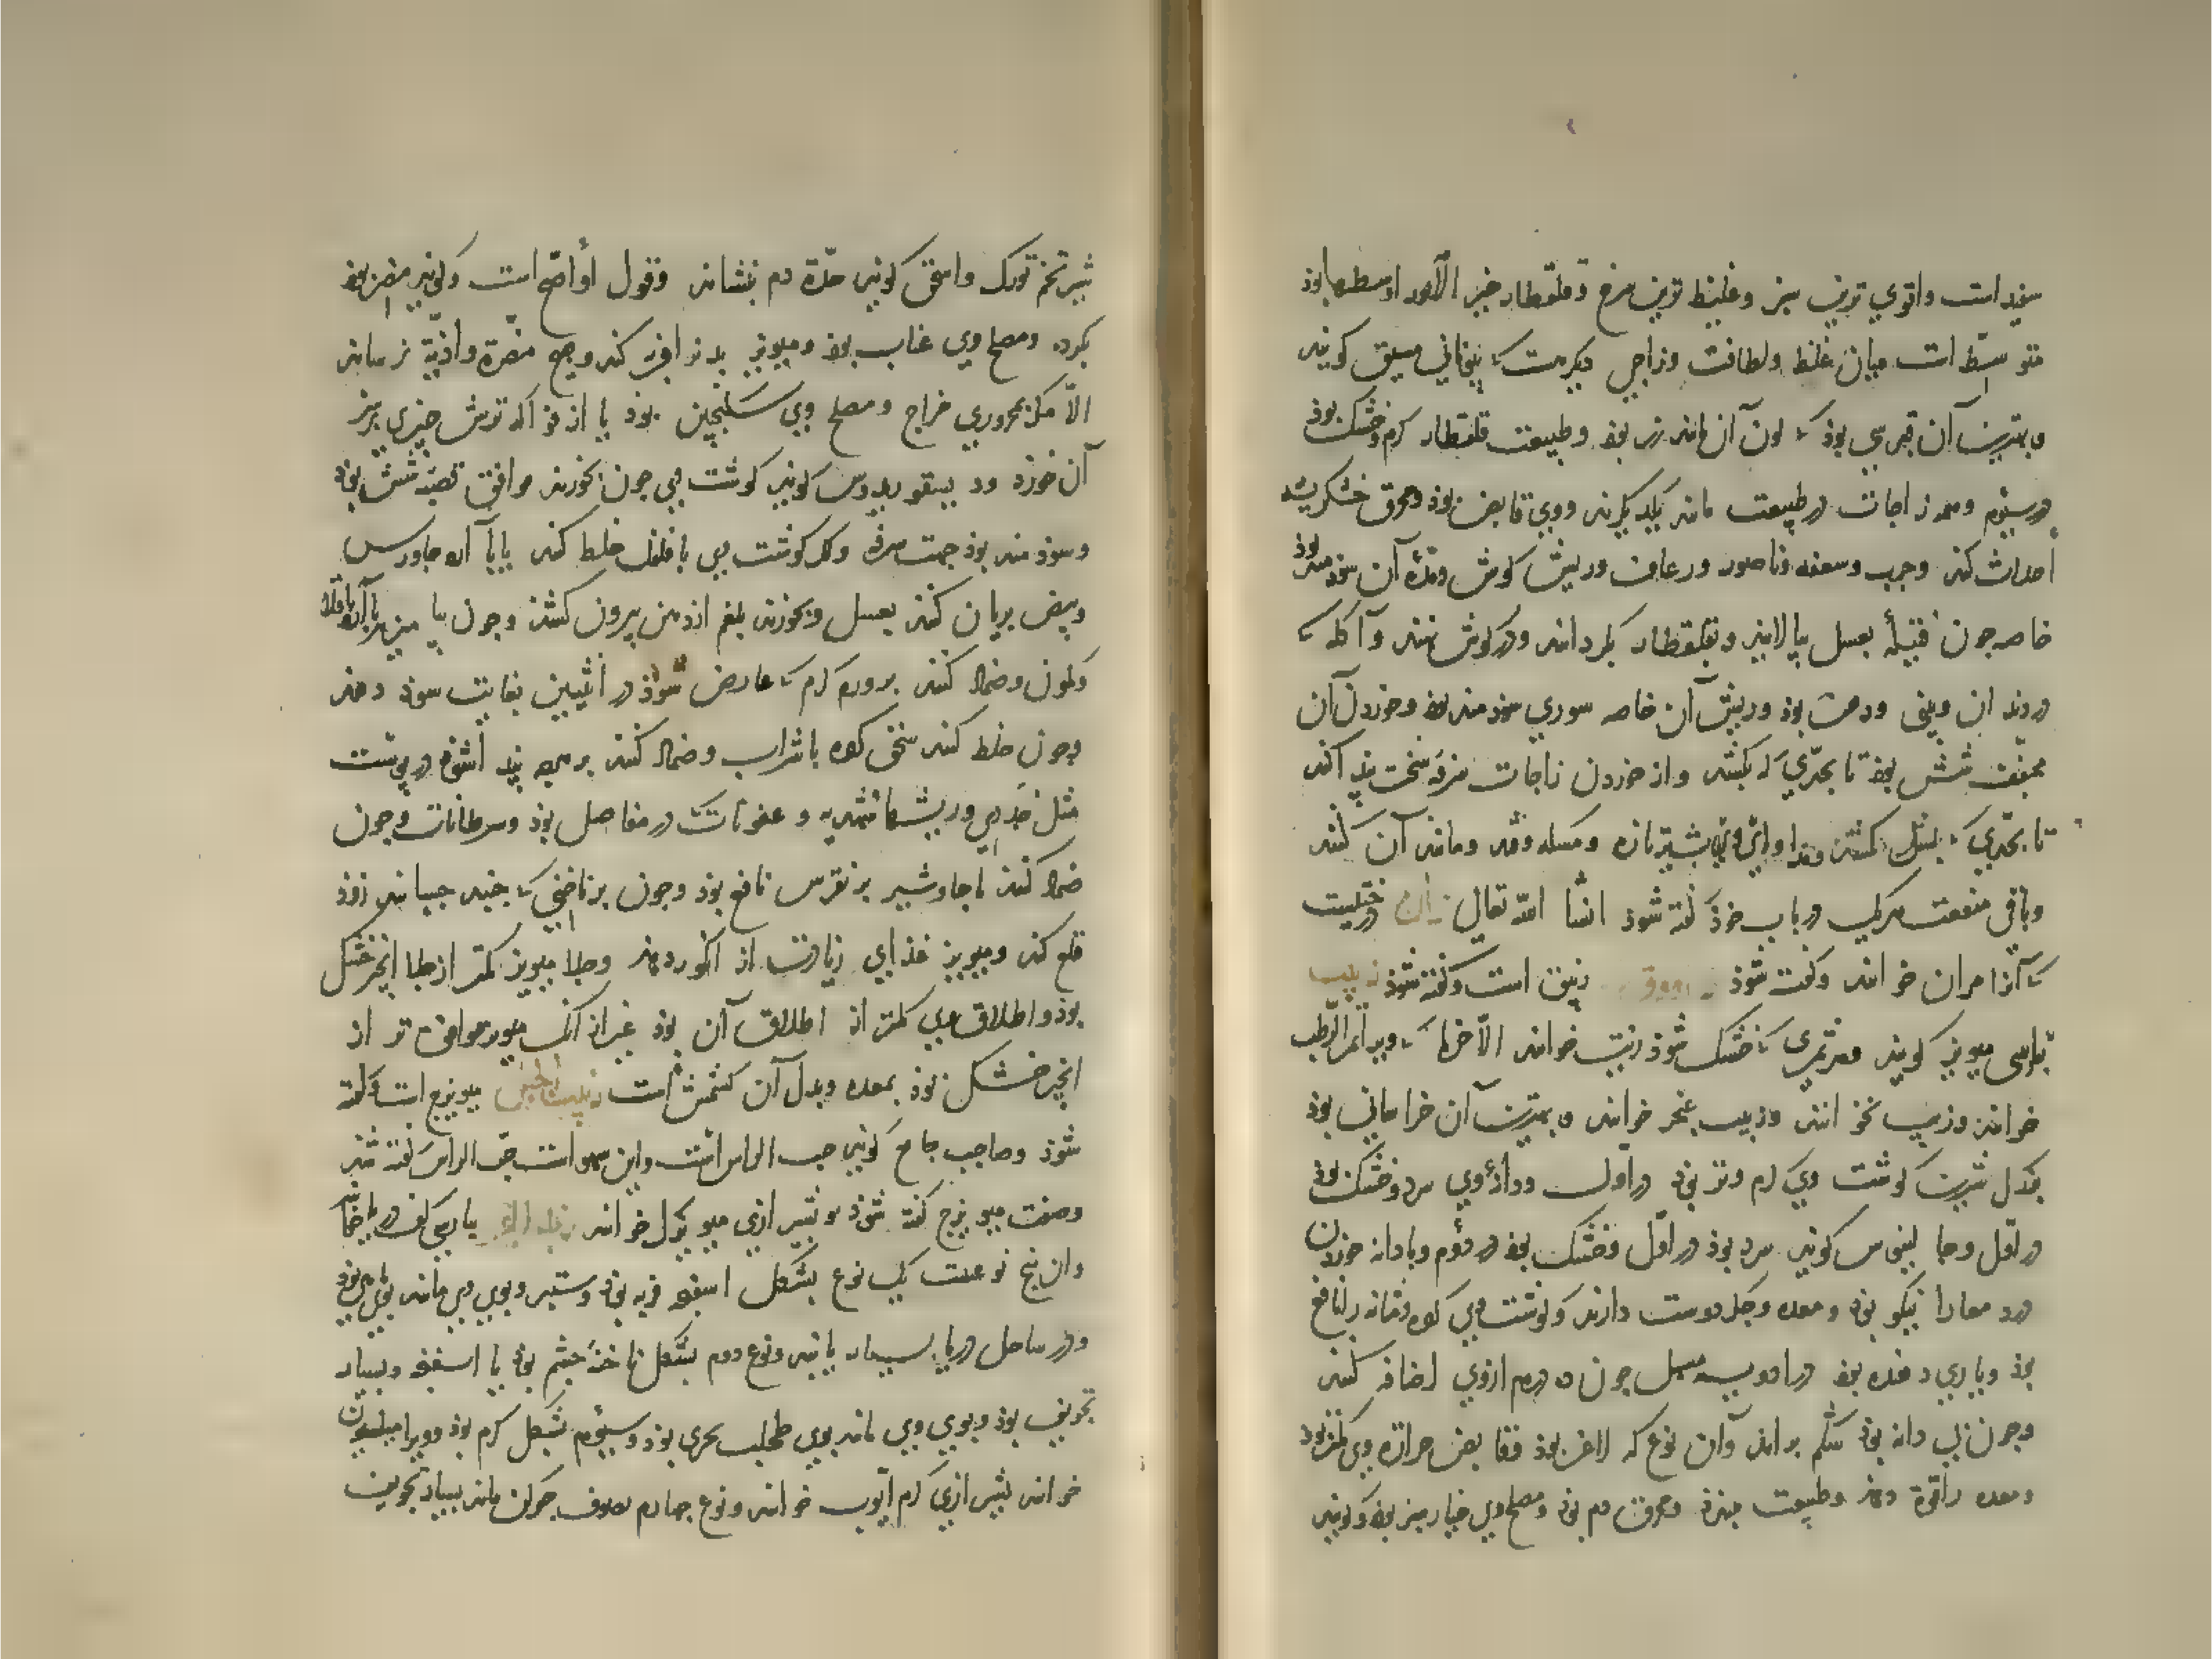 سفید است واقوی ترین سبز وغلیظ ترین سرخ و قلقطار خیر الامور اوسطها بوذ
متوسط است میان غلظ ولطافت وزاجی دیکرهست که یونانی میسق کویند
و بهترین آن قبرسی بوذ که لون آن مانند زر بوذ وطبیعت قلقطار کرم وخشک بوذ
در سیوم وهمه زاجات در طبیعت مانند یکدیکرند ووی قابض بوذ ومحرق خشکریشه
احداث کند وجرب وسعفه وناصور ورعاف وریش کوش ومده آن سوذمند بوذ
خاصه چون فتیله بعسل بیالایند وبقلقطار بکردانند ودر کوش نهند وآکله که
در دندان وبینی ودهن بوذ وریش آن خاصه سوری سوذمند بوذ وخوردن آن
مجفف شش بوذ تا بحدی که بکشد واز خوردن زاجات سرفه سخت پیدا کند
تا بحدی که بسل کشد ومداوای وی بشیر تازه ومسکه وقند ومانند آن کنند
وباقی منفعت هریک در باب خوذ کفته شوذ انشا الله تعالی زان درختیست
که آنرا مران خوانند وکفته شوذ زیبق است وکفته شوذ زبیب
بپارسی میویز کویند وهر ثمری که خشک شوذ زبیب خوانند الا خرما که ویرا تمر الرطب
خوانند وزبیب نخوانند وزبیب عنجد خوانند و بهترین آن خراسانی بوذ
بذل شیرین کوشت وی کرم وتر بوذ در اول ودانه وی سرد وخشک بوذ
در اول وجالینوس کویند سرد بوذ در اول وخشک بوذ در دوم وبا دانه خوردن
درد معا را نیکو بوذ ومعده وجکر دوست دارند وکوشت وی کرده ومثانه را نافع
بوذ ویاری دهنده بوذ در ادویه مسهل چون ده درم ازوی اضافه کنند
وچون بی دانه بوذ شکم براند وآن نوع که لاغر بوذ وقابض حرارة وی کمتر بوذ
ومعده را قوة دهد وطبیعت ببندد ومحرق دم بوذ ومصلح وی خیار سبز بوذ وکویند
شیر تخم تورک واسحق کویند حدة دم بنشاند وقول او اصح است وکویند مضر بوذ
بکرده ومصلح وی عناب بوذ ومیویز بدن را فربه کند وهیچ مضرة واذیة نرساند
الا مکر بمحروری مزاج ومصلح وی سکنجبین بوذ یا از فواکه ترش چیزی بر سر
آن خورد ودیسقوریدوس کویند کوشت وی چون بخورند موافق قصبه شش بوذ
وسوذمند بوذ جهت سرفه وکر کوشت وی با فلفل خلط کنند یا با آرد جاورس
وبیض بریان کنند بعسل وبخورند بلغم از دهن بیرون کشد وچون بیامیزند با آرد باقلا
وکمون وضماد کنند بر ورم کرم که عارض شوذ در انثیین بغایت سوذ دهد
وچون خلط کنند سحق کرده با شراب وضماد کنند بر هرچه پیدا شوذ در پوست
مثل جدری وریشها شهدیه وعفونات که در مفاصل بوذ وسرطانات وچون
ضماد کنند با جاوشیر بر نقرس نافع بوذ وچون بر ناخنی که جنبد چسبانند زوذ
قلع کند ومیویز غذای زیادت از انکور دهد وجلا میویز کمتر از جلا انجیر خشک
بوذ واطلاق وی کمتر از اطلاق آن بوذ غیر از آنک میویز موافق تر از
انجیر خشک بوذ بمعده وبدل آن کشمش است زبیب الجبل میویزج است وکفته
شوذ وصاحب جامع کویند حب الراس است واین سهو است حب الراس کفته شد
وصفت میویزج کفته شوذ وبشیرازی میویزک خوانند زبد البحر بپارسی کف دریا خوانند
وآن پنج نوعست یک نوع بشکل اسفنج فربه بوذ وستبر وبوی وی مانند بوی ماهی بوذ
ودر ساحل دریا بسیار یابند ونوع دوم بشکل ناخنه چشم بوذ یا اسفنج وبسیار
تجویف بوذ وبوی وی مانند بوی طحلب بحری بوذ وسیوم بشکل کرم بوذ وویرا میلسیون
خوانند بشیرازی کرم ایوب خوانند ونوع چهارم بصوف چرکن ماند بسیار تجویف